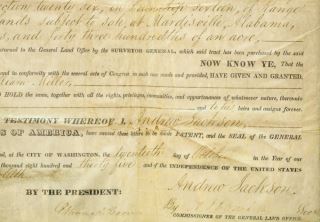 Section twenty six, in Township sixteen, of Range
lands subject to sale, at Mardisville, Alabama,
and forty three hundredths of an acre,
returned to the General Land Office by the SURVEYOR GENERAL, which said tract has been purchased by the said
NOW KNOW YE, That the
and in conformity with the several acts of Congress in such case made and provided, HAVE GIVEN AND GRANTED
HOLD the same, together with all the rights, privileges, immunities, and appurtenances of whatsoever nature, thereunto
and to his heirs and assigns forever.
TESTIMONY WHEREOF I, Andrew Jackson
S OF AMERICA, have caused these letters to be made PATENT, and the SEAL of the GENERAL
at the CITY OF WASHINGTON, the twentieth day of in the Year of our
thousand eight hundred and thirty five and of the INDEPENDENCE OF THE UNITED STATES
BY THE PRESIDENT: Andrew Jackson
By
COMMISSIONER OF THE GENERAL LAND OFFICE.